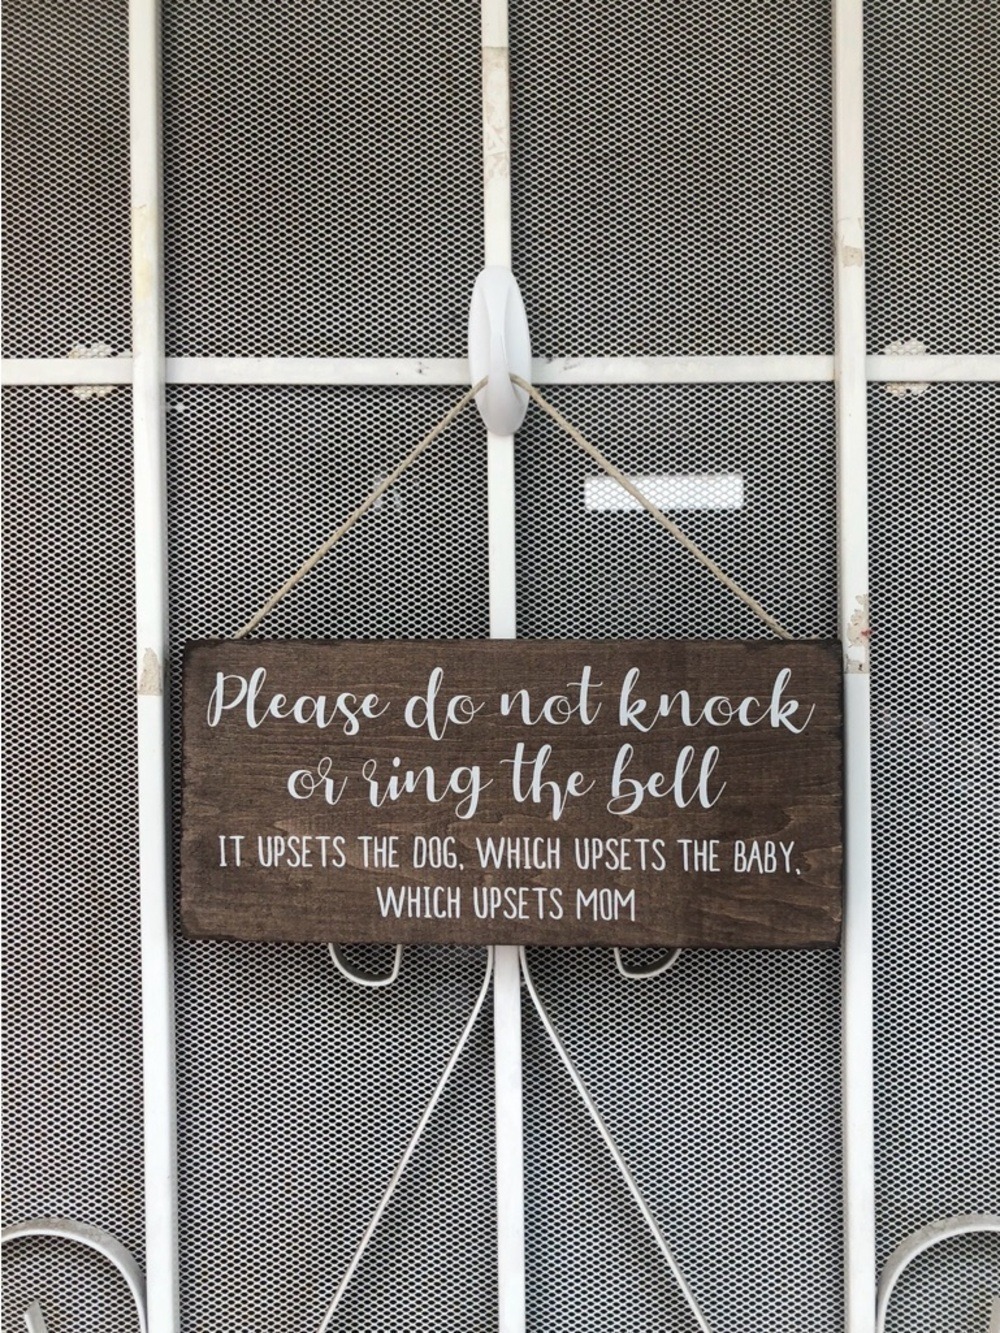 Please do not knock
or ring the bell
IT UPSETS THE DOG, WHICH UPSETS THE BABY,
WHICH UPSETS MOM